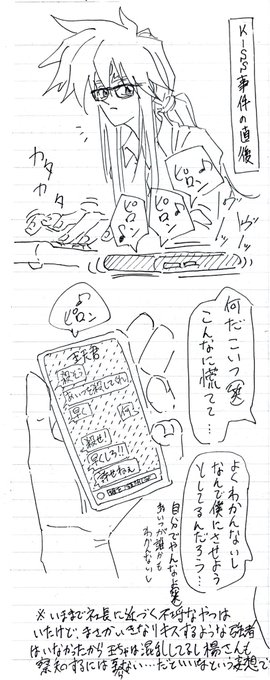 KISS事件の直後
カタ
カタ
ピロン♪
ピロン♪
ピロン♪
何だこいつ(笑)
こんなに慌ててて…
♪ピロン
王天君
あいつを殺してくれ
早く!
殺せ!
早くしろ!!
許せねぇ
よくわかんないし
なんで僕にさせよう
としてるんだろう…
自分でやんなよ(笑)
あいつが誰かも
わかんないし
※いままで社長に近づく不埒なやつは
いたけど、まさかいきなりキスするような強者
はいなかったから王ちゃんは混乱してるし楊さんも
察知するには至らない…だといいなという妄想で